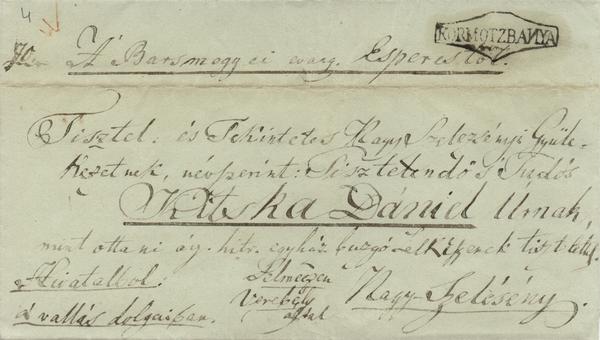 4
KÖRMÖTZBANYA
A' Barsmegyei evang. Esperestől.
Tisztel: és Tekintetes Nagy Szelezsényi Gyüle-
kezetnek, névszerint: Tisztelendő s Tudós
Kutska Dániel Úrnak,
mint ottani ág. hitv. egyház buzgó Lelkipászt
Hivatalból:
a' vallás dolgaiban.
Selmeczen
Verebély
által
Nagy-Szelésény.